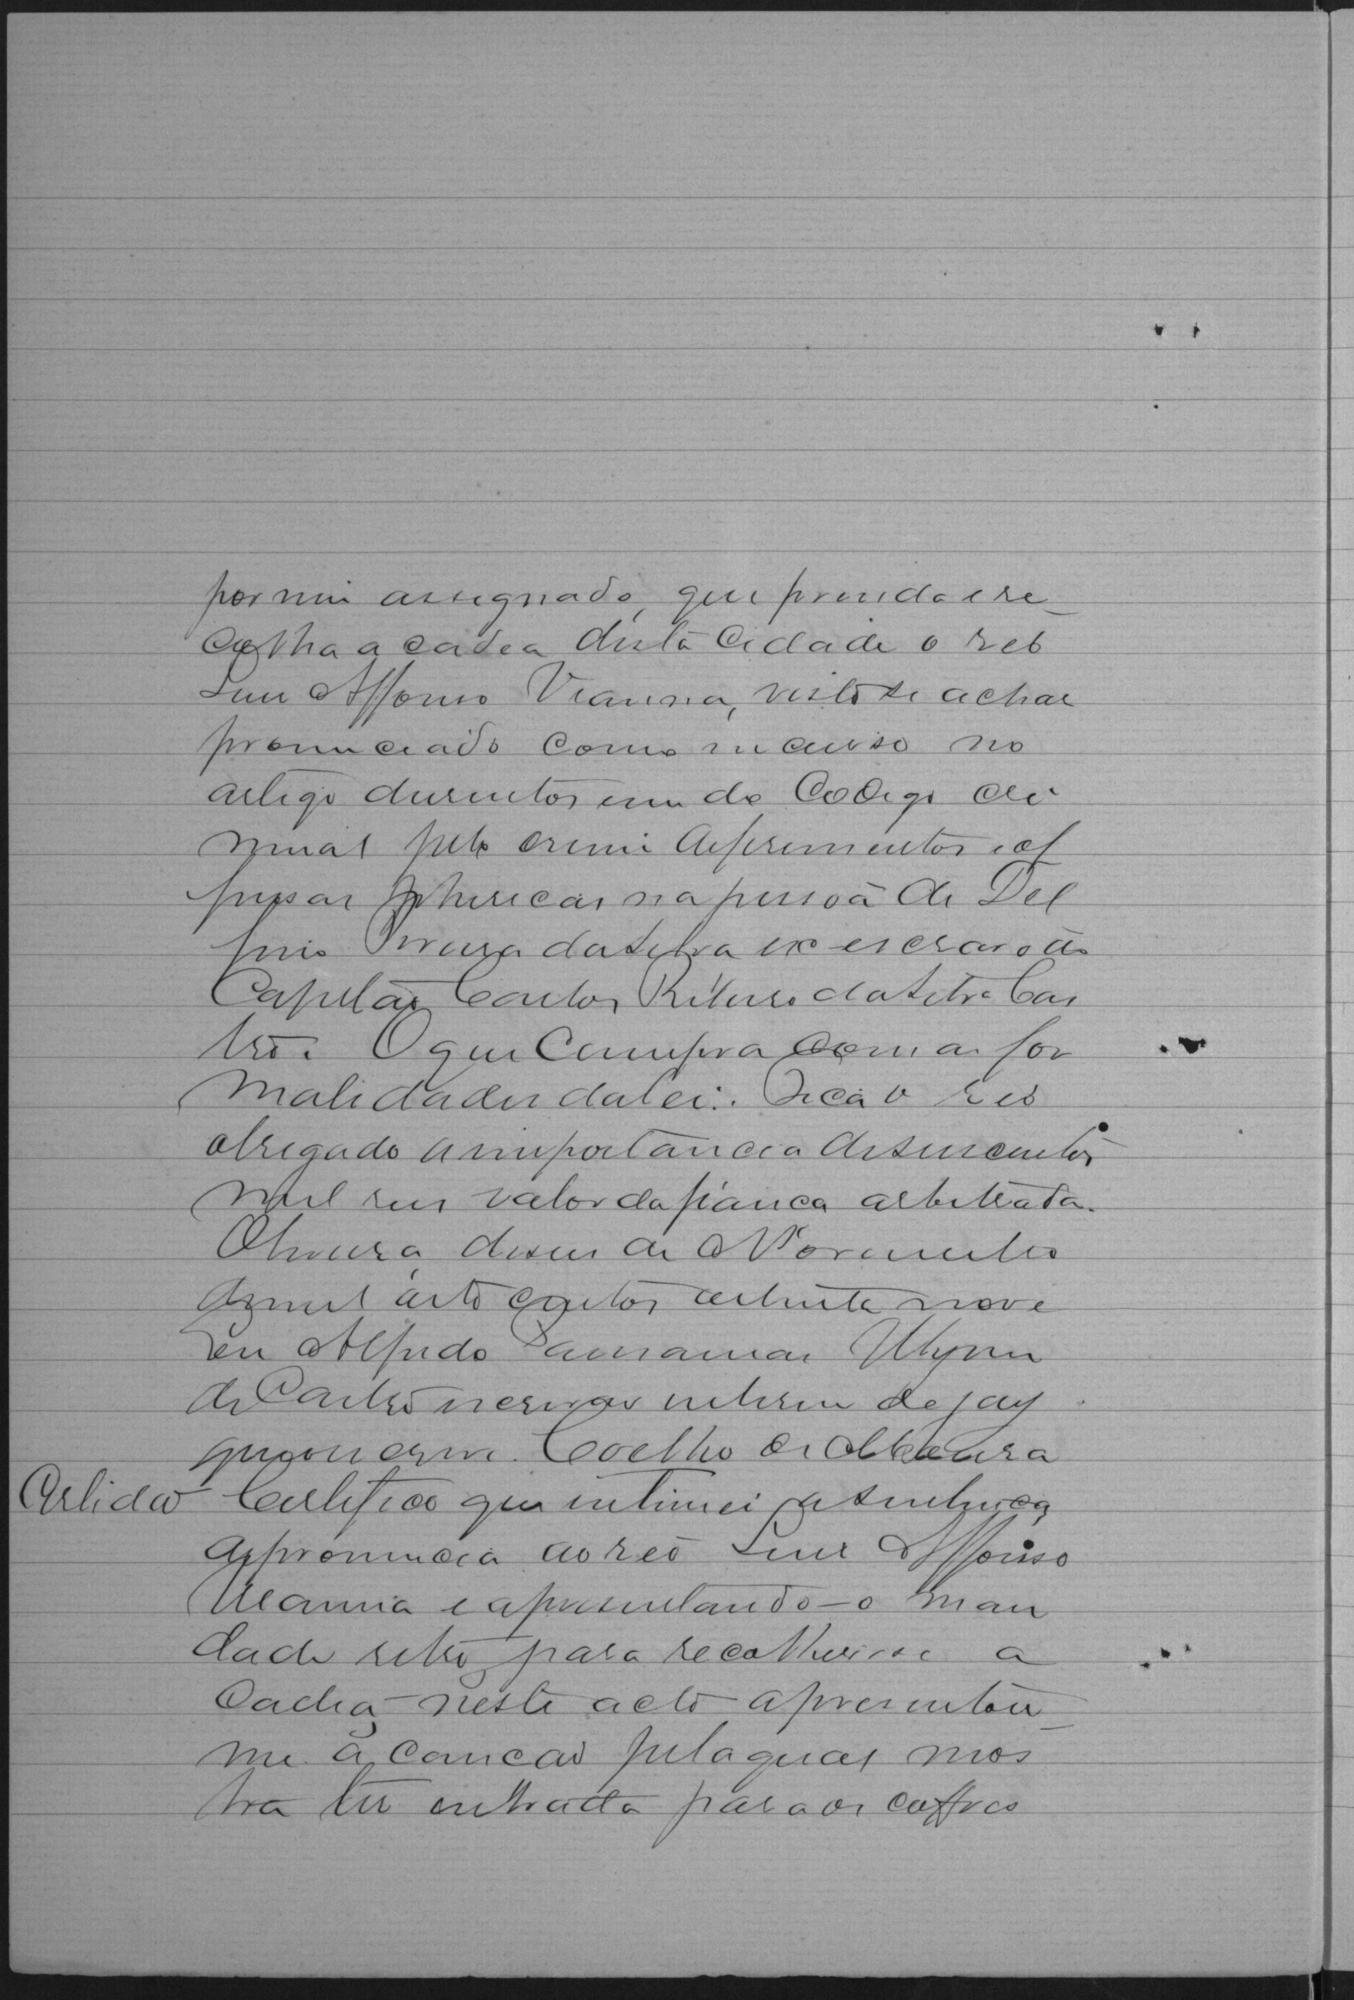 por mim assignado, que prenda e re-
colha a cadea desta Cidade o reo
Luis Affonso Vianna, visto se achar
pronunciado como incurso no
artigo dusentos e um do Codigo cri
minal pelo crime de ferimentos e of
fensas phisicas na pessoa de Del
fino da Silva ex escravo do
Capitão Carlos da Silva Cas
tro. O que cumpra com as for
malidades da lei. Fica o reo
obrigado a importancia de
mil reis valor da fiança arbitrada.
Oliveira, de Novembro
de mil oito centos e trinta nove
Eu Alfredo
de Castro escrivão interino do jury
que o escrevi. Coelho de Moura
Certidão Certifico que intimei a sentença
de pronuncia ao reo Luis Affonso
Vianna e apresentando-o man
dado retro para recolher-se a
Cadea, neste acto apresentou-
me a caução pela qual mos
tra ter entrado para os coffres